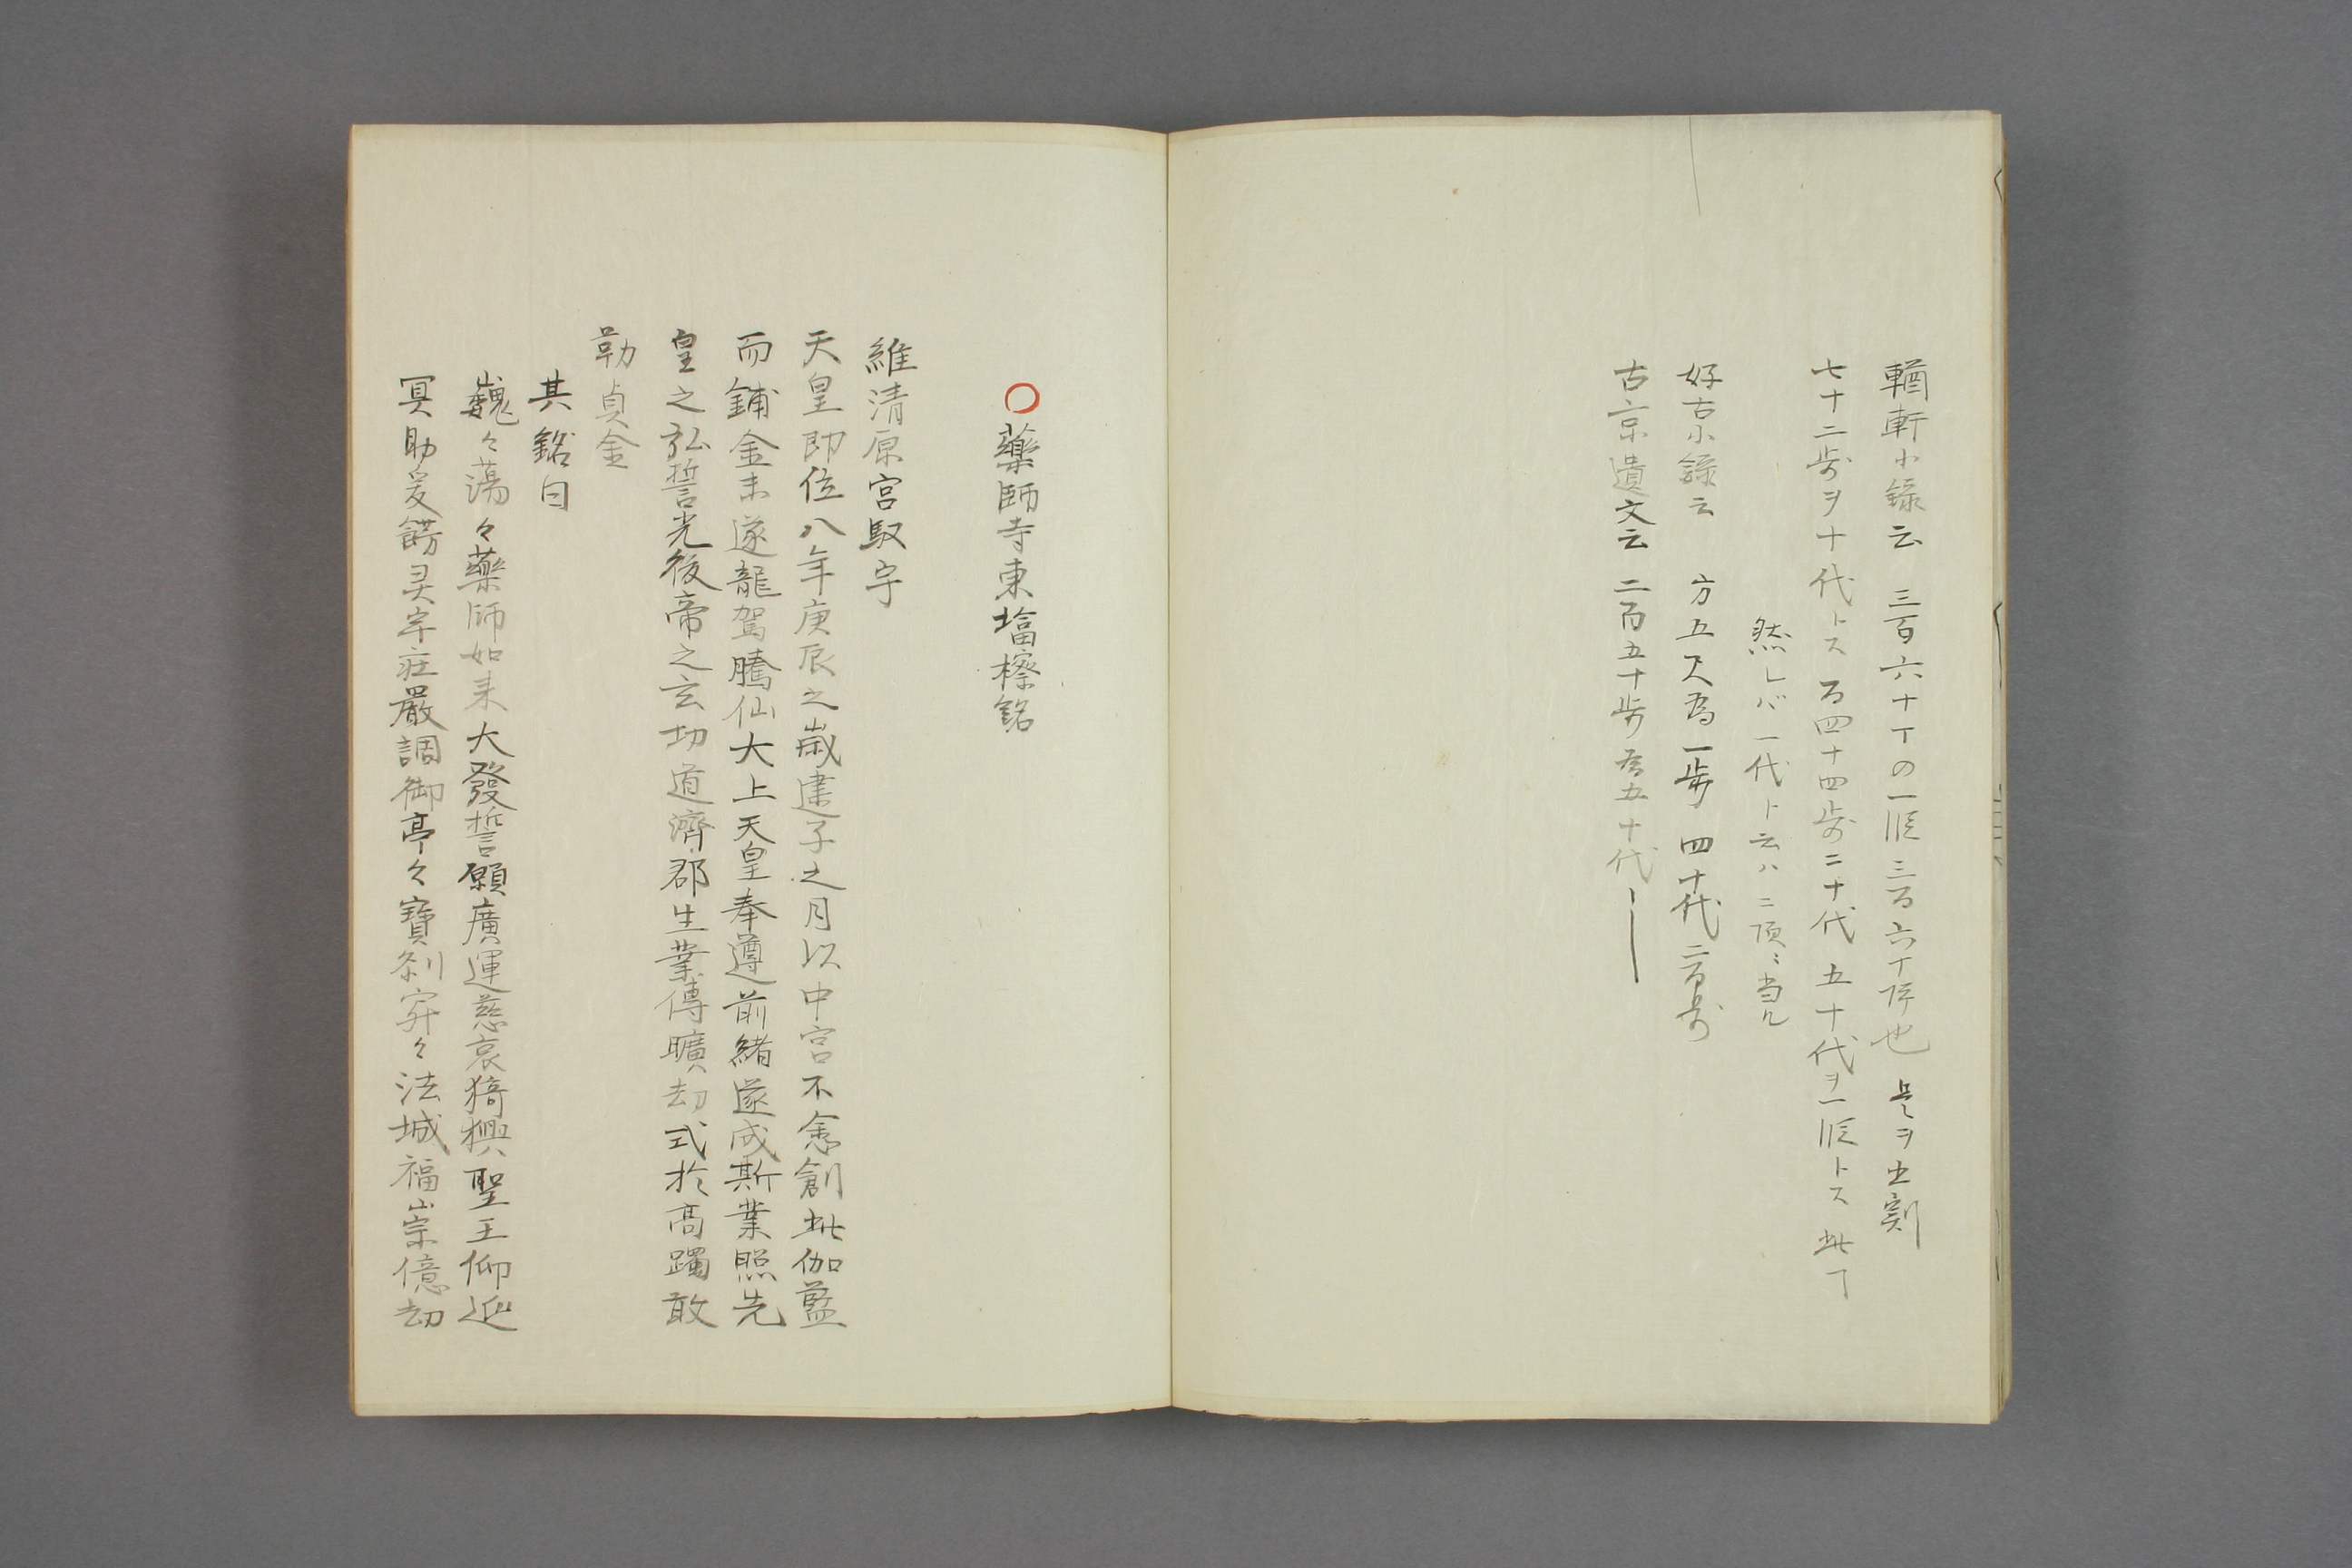 輶軒小録云 三百六十丁の一段三百六十坪也 是ヲ土割
七十二歩ヲ十代トス 百四十四歩二十代 五十代ヲ一段トス 此丁
然レバ一代ト云ハ二項ニ当ル
好古小録云 方五尺為一歩 四十代二百歩
古京遺文云 二百五十歩為五十代―
○薬師寺東塔檫銘
維清原宮馭宇
天皇即位八年庚辰之歳建子之月以中宮不悆創此伽藍
而鋪金未遂龍駕騰仙大上天皇奉遵前緒遂成斯業照先
皇之弘誓光後帝之玄功道済郡生業傳曠劫式於高躅敢
勒貞金
其銘曰
巍々蕩々藥師如来大發誓願廣運慈哀猗𤟹聖王仰延
冥助爰餝灵宇荘嚴調御亭々寶刹寂々法城福崇億劫